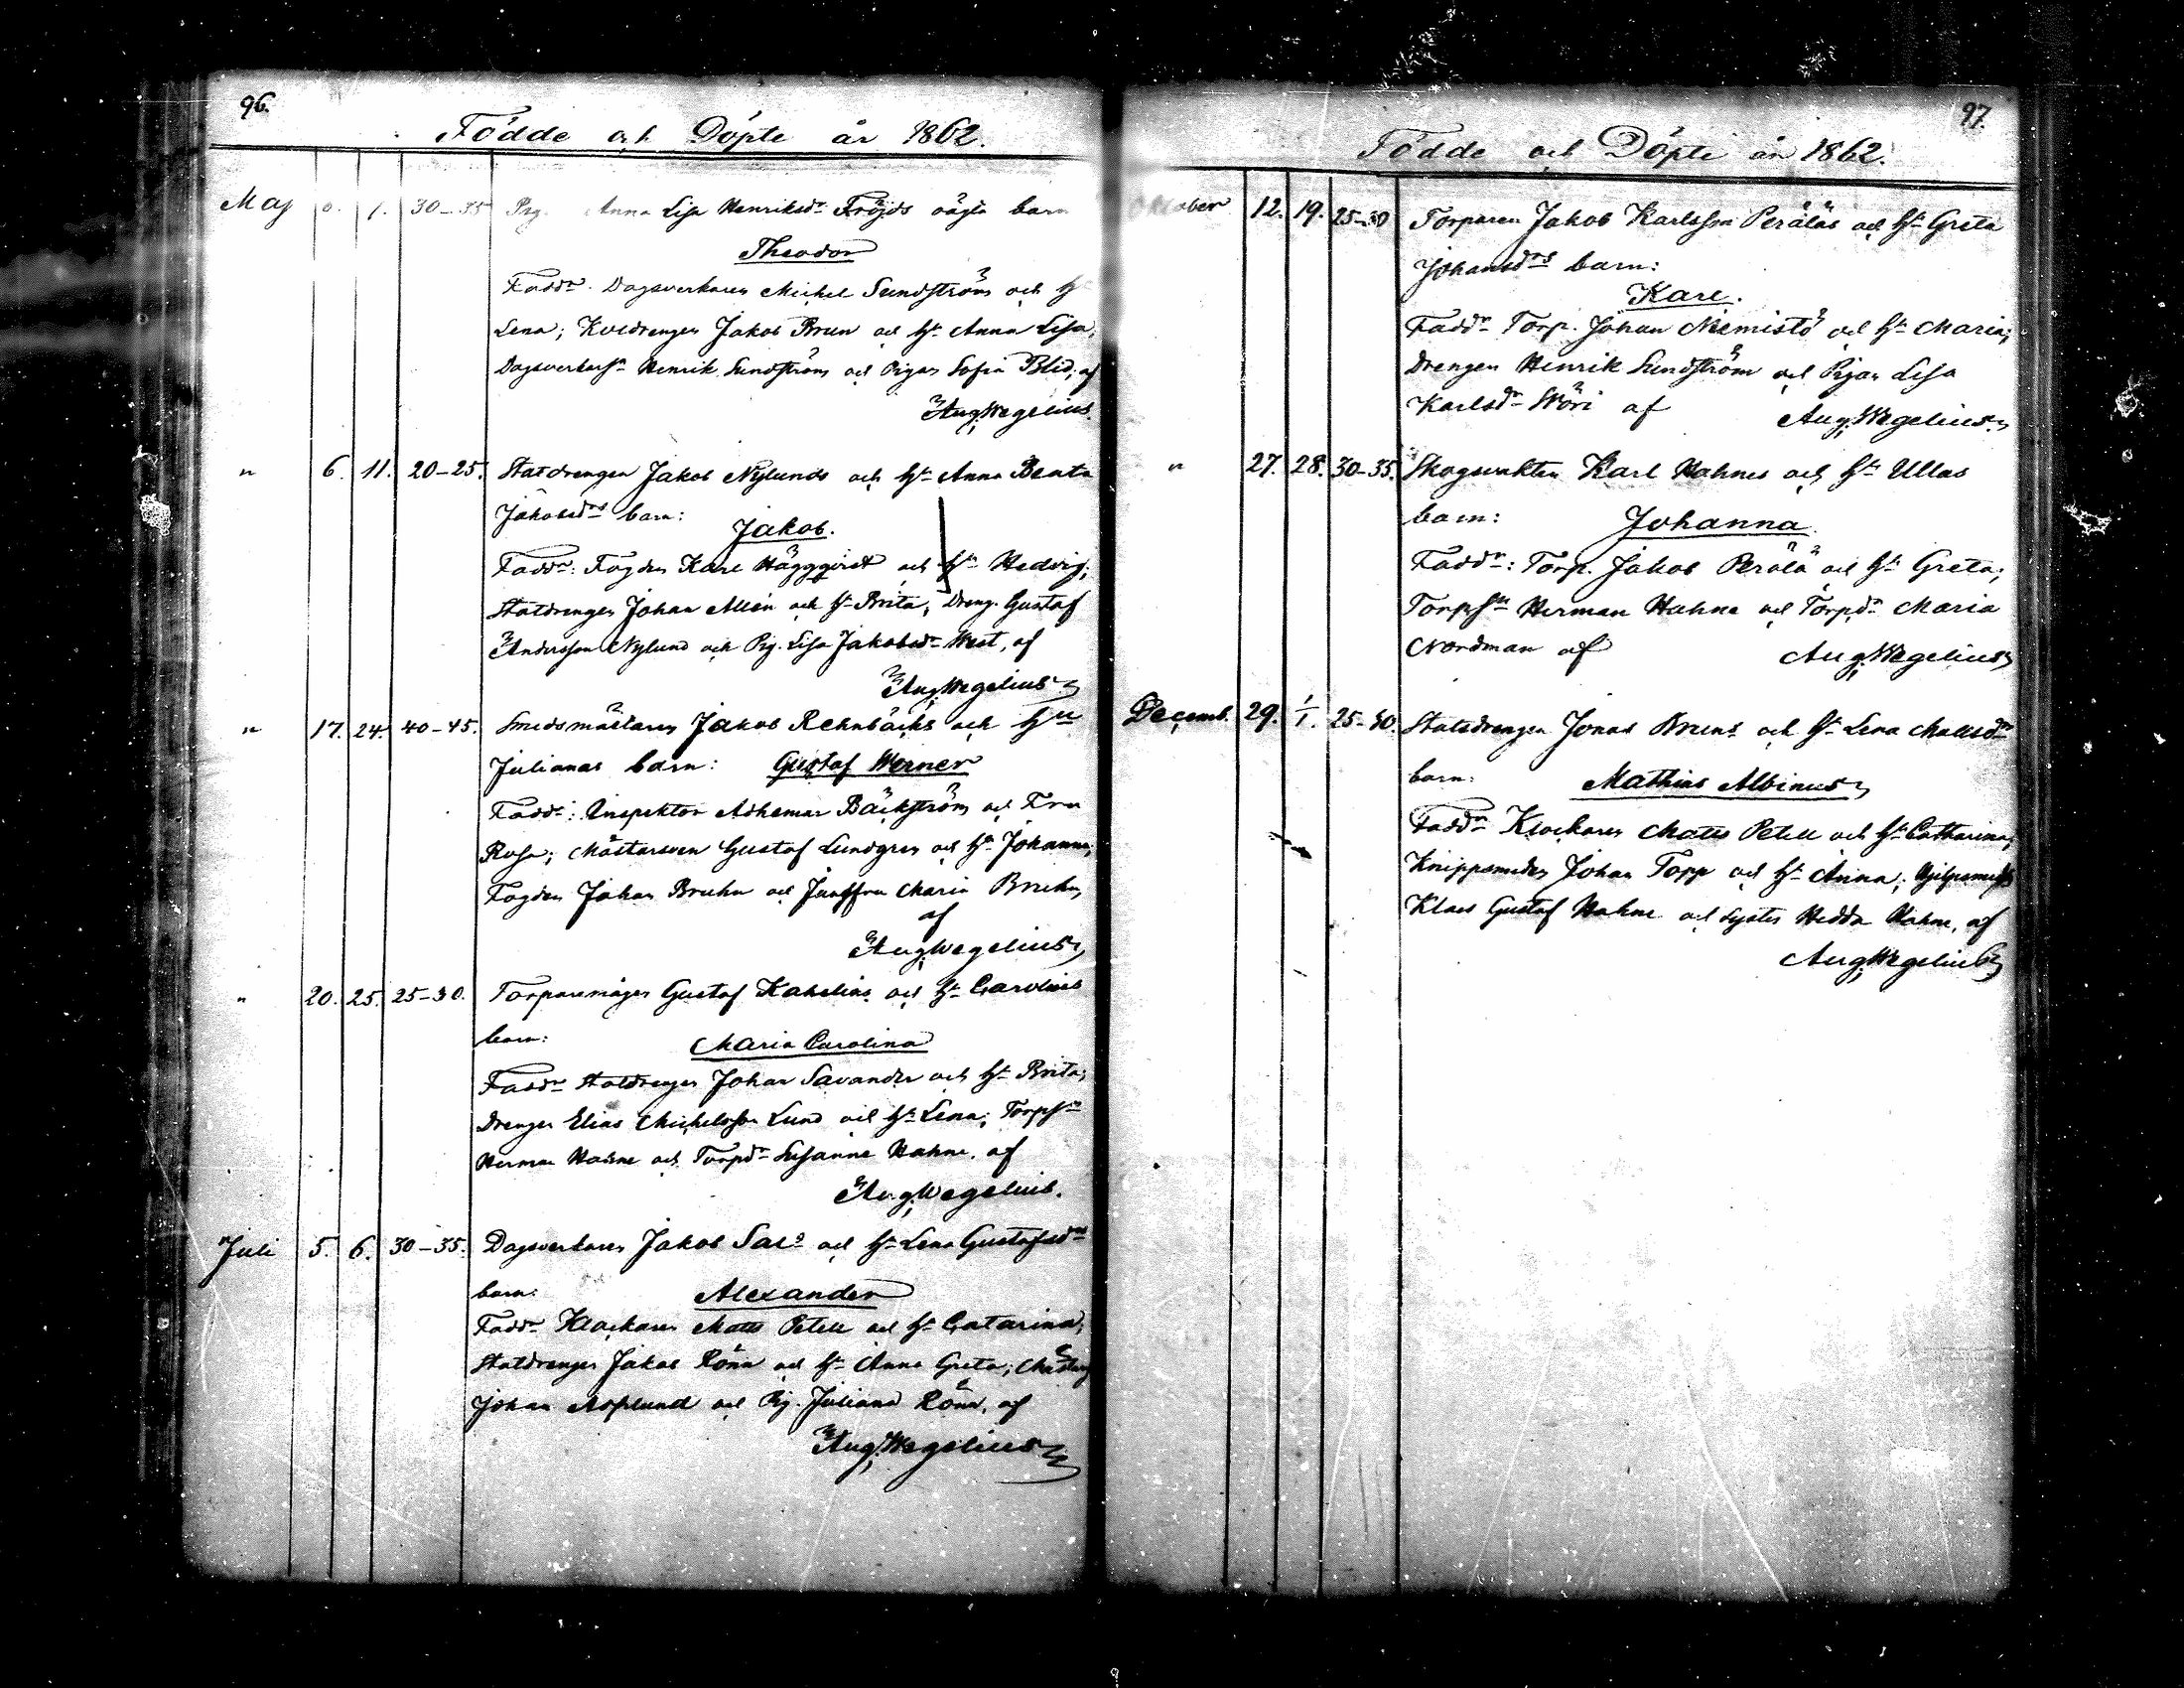 96.
Födde och Döpte år 1862.
Maj 6. 7. 30-35 Pig. Anna Lisa Henriksdr Fröjds oägta barn
Theodor
Faddr. Dagsverkaren Michel Sundström och H
Lena; Koldrengen Jakob Brun och Hu Anna Lisa;
Dagsverkarsn Henrik Sundström och Pigan Sofia Blid, af
Aug. Wegelius.
" 6. 11. 20-25. Statdrengen Jakob Nylunds och Hu Anna Beata
Jakobsdrs barn:
Jakob.
Faddr: Fogden Karl Häggqvist och Hu Hedvig;
Statdrengen Johan Allén och Hu Brita; Dreng. Gustaf
Andersson Nylund och Pig. Lisa Jakobsdr West, af
Aug. Wegelius
" 17. 24. 40-45. Smedsmästaren Jakob Rehnbäcks och Hu
Julianas barn: Gustaf Werner
Faddr: Inspektor Adhemar Bäckström och Fru
Rosa; Mästarsven Gustaf Lundgren och Hu Johanna;
Fogden Johan Bruhn och Jungfru Maria Bruhn,
af
Aug. Wegelius
" 20. 25. 25-30. Torparemågen Gustaf Kakelias och Hu Carolinas
barn:
Maria Carolina
Faddr Statdrengen Johan Savander och Hu Brita;
Drengen Elias Michelsson Lund och Hu Lena; Torpsn
Herman Hahne och Torpdr Susanna Hahne, af
Aug. Wegelius.
Juli 5. 6. 30-35. Dagsverkaren Jakob Sals och Hu Lena Gustafsdrs
barn:
Alexander
Faddr Klockaren Matts Petell och Hu Catarina;
Statdrengen Jakob Rönn och Hu Anna Greta;
Johan Asplund och Pig. Juliana Rönn, af
Aug. Wegelius
97.
Födde och Döpte år 1862.
Oktober 12. 19. 25-30 Torparen Jakob Karlsson Peräläs och Hu Greta
Johansdrs barn:
Karl.
Faddr Torp. Johan Niemistö och Hu Maria;
Drengen Henrik Sundström och Pigan Lisa
Karlsdr Wöri af Aug. Wegelius
" 27. 28. 30-35. Skogsvakten Karl Hahnes och Hu Ullas
barn: Johanna
Faddr: Torp. Jakob Perälä och Hu Greta;
Torpsn Herman Hahne och Torpdr Maria
Nordman af Aug. Wegelius
Decemb. 29. 1/1. 25-30. Statdrengen Jonas Bruns och Hu Lena Mattsdrs
barn: Mathias Albinus
Faddr Klockaren Matts Petell och Hu Catharina;
Knippsmeden Johan Topp och Hu Anna; Hjelpsmeds
Klas Gustaf Hahne och Syster Hedda Hahne, af
Aug. Wegelius